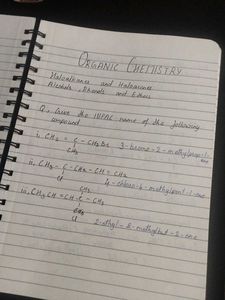 ORGANIC CHEMISTRY
Haloalkanes and Haloarenes
Alcohols, Phenols and Ethers
Q. Give the IUPAC name of the following
compound
i. CH2 = C - CH2Br 3-bromo-2-methylprop-1-
ene
CH3
ii. CH3 - C - CH2 - CH = CH2
Cl 4-chloro-4-methylpent-1-ene
CH3
iii. CH3CH = CH - C - CH3
CH3
Cl